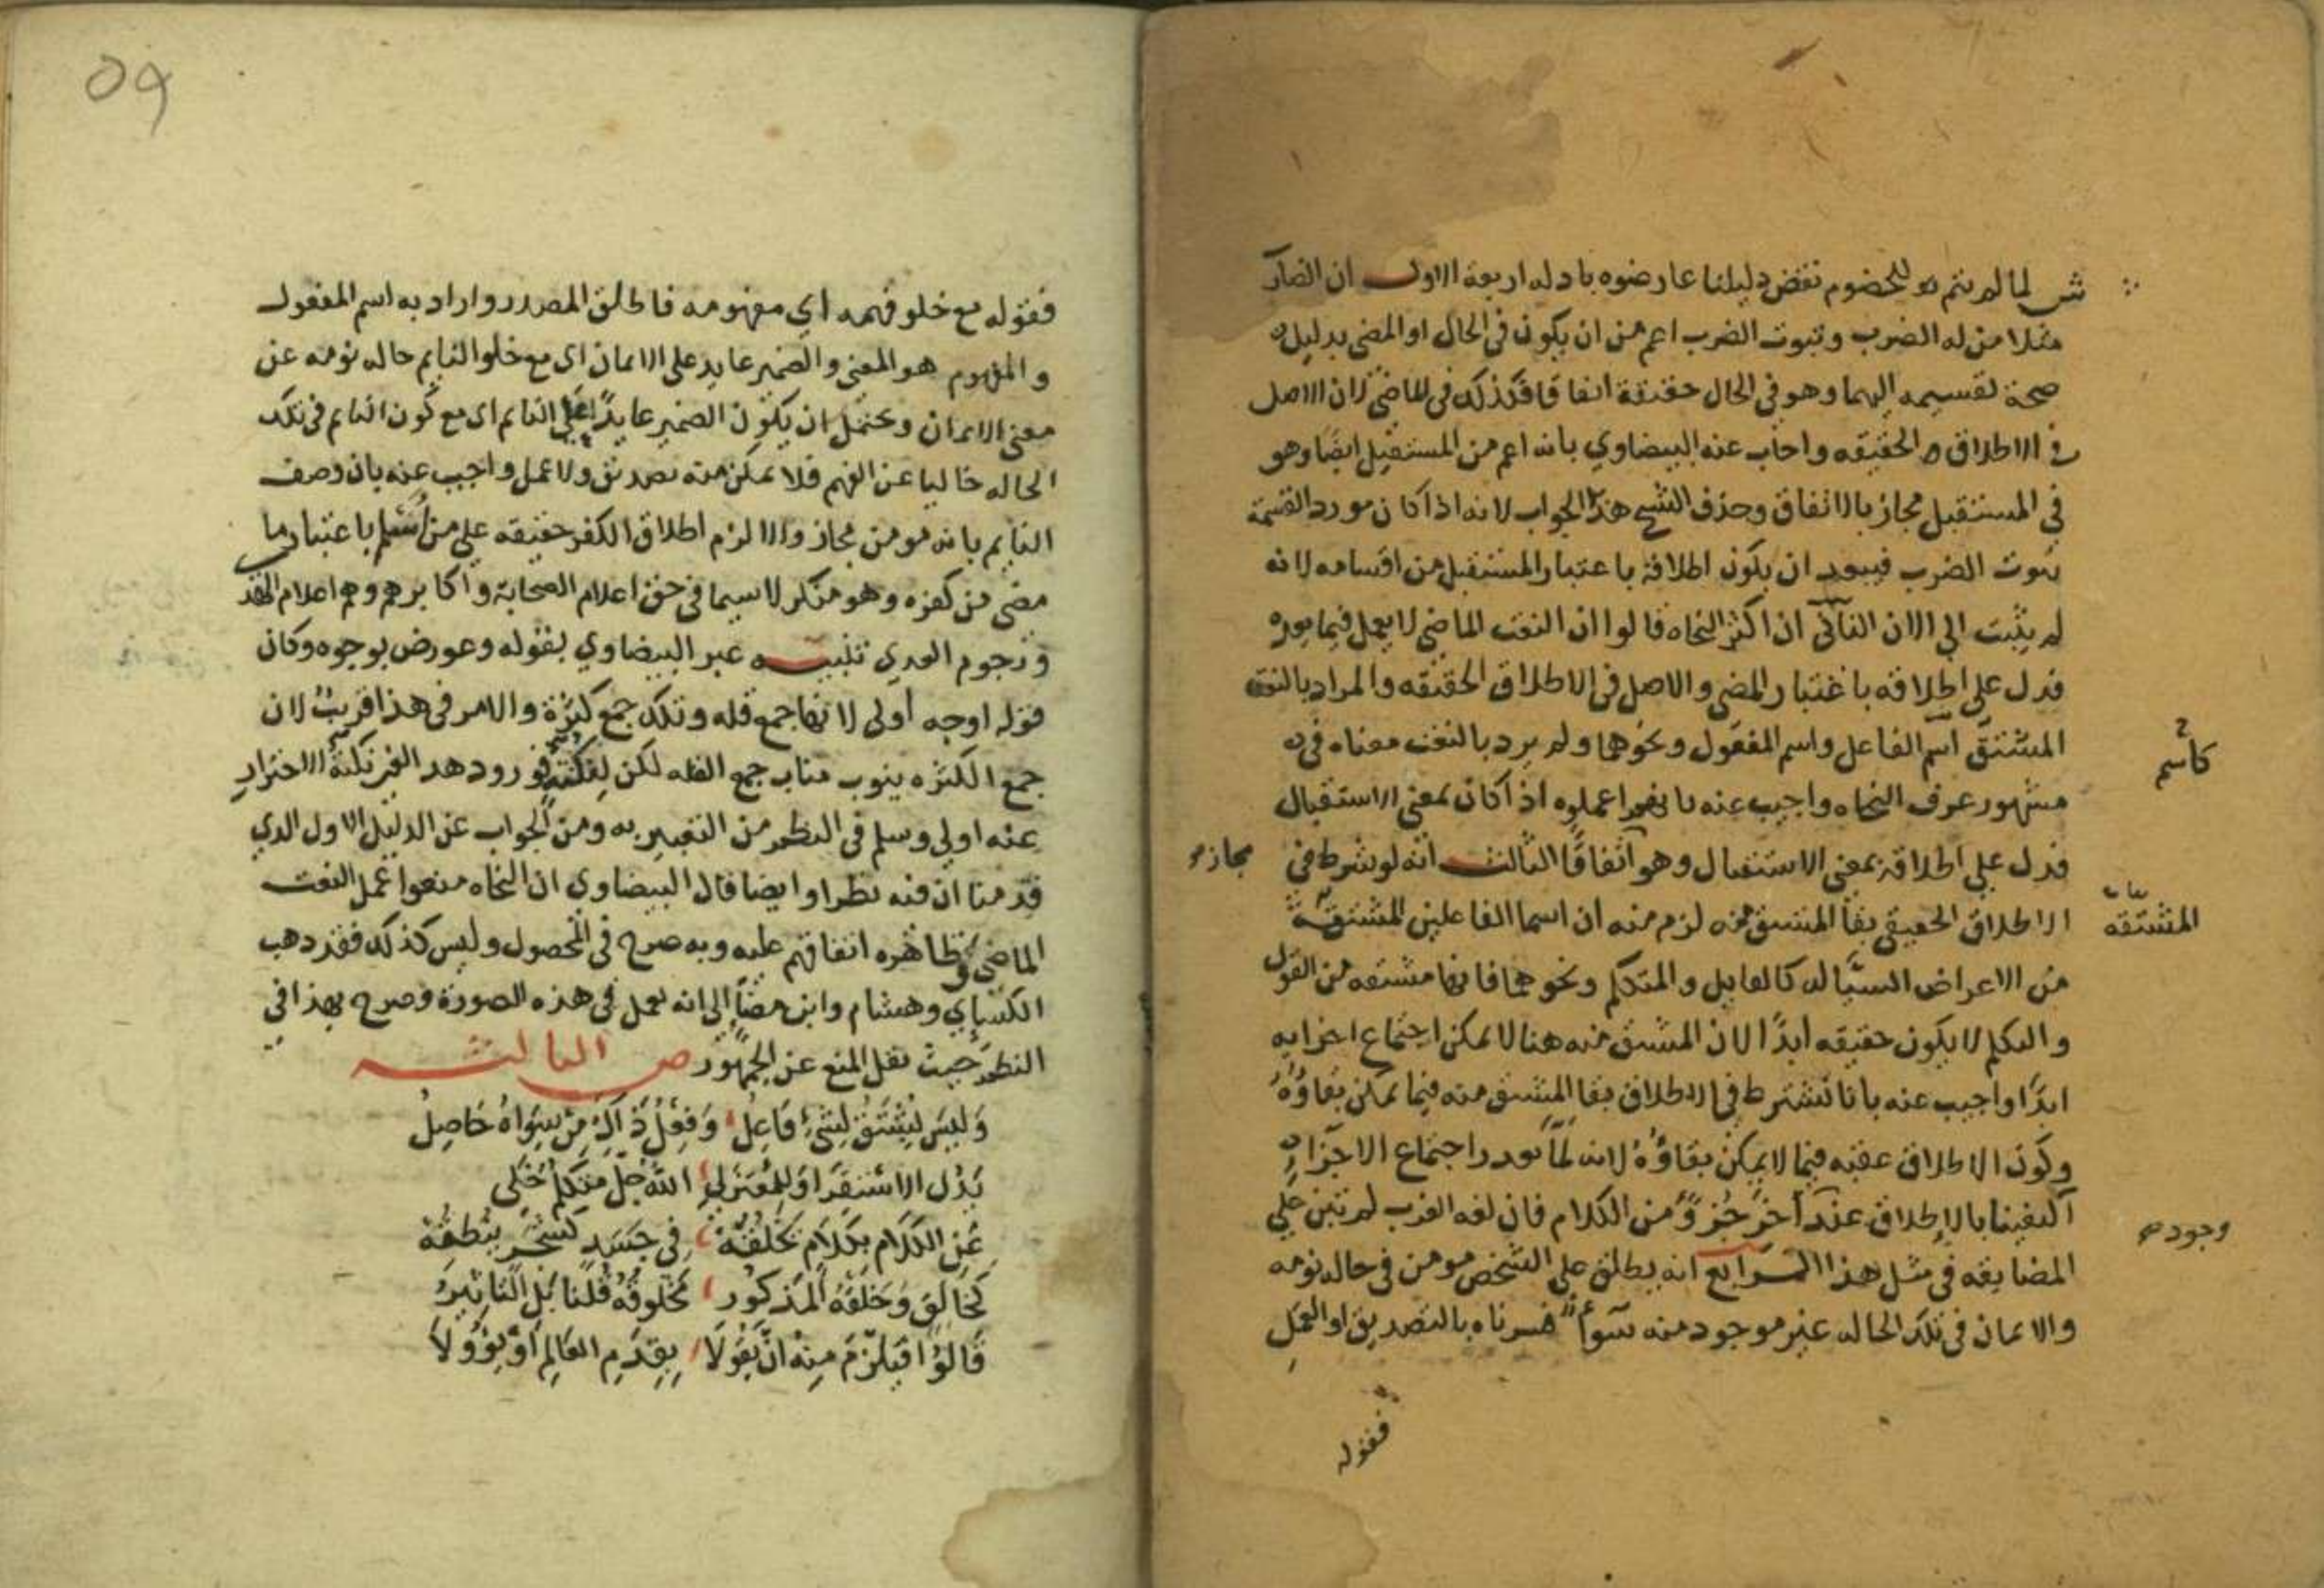 ش لما لم يتم للخصوم نقض دليلنا عارضوه بادله اربعة الاول ان الضارب
مثلا من له الضرب وثبوت الضرب اعم من ان يكون في الحال او المضي بدليل
صحة تقسيمه اليهما وهو في الحال حقيقة اتفاقا فكذلك في الماضي لان الاصل
في الاطلاق الحقيقه واجاب عنه البيضاوي بانه اعم من المستقبل ايضا وهو
في المستقبل مجاز بالاتفاق وحذف الشيخ هذا الجواب لانه اذا كان مورد القسمة
ثبوت الضرب فيبعد ان يكون اطلاقه باعتبار المستقبل من اقسامه لانه
لم يثبت الي الان الثاني ان اكثر النحاه قالوا ان النعت الماضي لا يعمل فيما بعده
فدل على اطلاقه باعتبار المضي والاصل في الاطلاق الحقيقه والمراد بالنعت
المشتق اسم الفاعل واسم المفعول ونحوهما ولم يرد بالنعت معناه في
كاسم
مشهور عرف النحاه واجيب عنه بانهم اعملوه اذا كان بمعني الاستقبال
فدل علي اطلاقه بمعني الاستقبال وهو اتفاقا الثالث انه لو شرط في
مجاز
الاطلاق الحقيقي بقا المشتق منه لزم منه ان اسما الفاعلين المشتقة
المشتقه
من الاعراض السيالة كالقايل والمتكلم ونحوهما فانها مشتقه من القول
والتكلم لا يكون حقيقه ابدًا لان المشتق منه هنا لا يمكن اجتماع اجزايه
ابدًا واجيب عنه بانا نشترط في الاطلاق بقا المشتق منه فيما يمكن بقاؤه
وكون الاطلاق عقبه فيما لا يمكن بقاؤه لانه لما تعذر اجتماع الاجزا
اكتفينا بالاطلاق عند اخر جزؤ من الكلام فان لغه العرب لم تبن علي
المضايقه في مثل هذا الرابع انه يطلق علي الشخص مومن في حاله نومه
وجوده
والايمان في تلك الحاله غير موجود منه سوآء فسرناه بالتصديق او العمل
فقوله
09
فقوله مع خلو فهمه اي مفهومه فاطلق المصدر واراد به اسم المفعول
والمفهوم هو المعني والضمير عايد على الايمان اي مع خلو النايم حاله نومه عن
معني الايمان ويحتمل ان يكون الضمير عايدًا علي النايم اي مع كون النايم في تلك
الحاله خاليا عن الفهم فلا يمكن منه تصديق ولا عمل واجيب عنه بان وصف
النايم بانه مومن مجاز والا لزم اطلاق الكفر حقيقه علي من اسلم باعتبار ما
مضي من كفره وهو منكر لا سيما في حق اعلام الصحابة واكابرهم وهم اعلام
ونجوم الهدي تنبيه عبر البيضاوي بقوله وعورض بوجوه وكان
قوله اوجه اولى لانها جمع قله وتلك جمع كثرة والامر في هذا قريب لان
جمع الكثره ينوب مناب جمع القله لكن ورود هذا الغير نكتة الاحتراز
عنه اولي وسلم في النظم من التعبير به ومن الجواب عن الدليل الاول الذي
قدمنا ان فيه نظرا وايضا قال البيضاوي ان النحاه منعوا عمل النعت
الماضي وظاهره اتفاقهم عليه وبه صرح في المحصول وليس كذلك فقد ذهب
الكسايي وهشام وابن مضا الي انه يعمل في هذه الصورة وصرح بهذا في
النظم حيث نقل المنع عن الجمهور ص الثالثه
وَليسَ يُشتَقُّ لِشَيْءٍ فَاعِلُ وَفِعْلُ ذَاكَ مِنْ سِوَاهُ حَاصِلُ
يَدُلّ الاسْتِقرَا وَللمُعْتَزلي اللهُ جَلّ مُتكلّمٌ خَلي
عَنِ الكَلَامِ بكَلَامٍ خَلقَهْ فِي جَسَدٍ كَشَجَرٍ يُنطِقُهْ
كَخَالِقٍ وَخَلْقُهُ المَذكُور مَخْلُوقُهُ قُلْنَا بَل التَّاثِيرُ
قَالُوا فَيلزَم مِنهُ انْ يَقُولَا بِقِدَمِ العَالمِ أَوْ يَؤُولَا